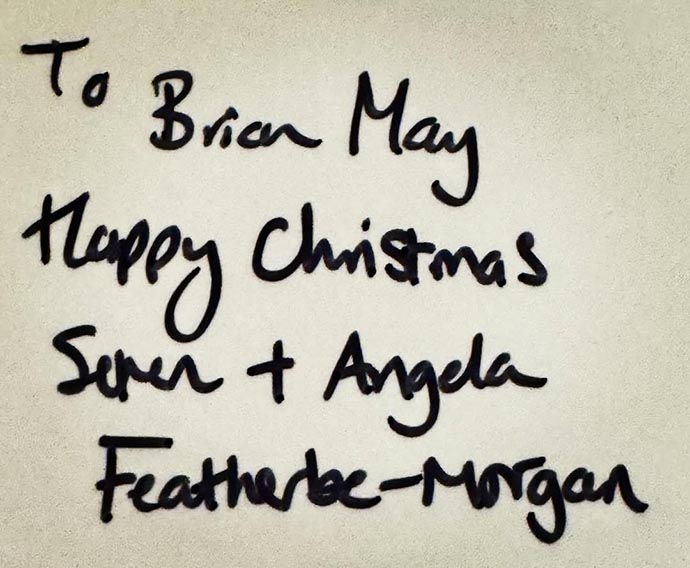 To Brian May
Happy Christmas
Seren + Angela
Featherbe-Morgan